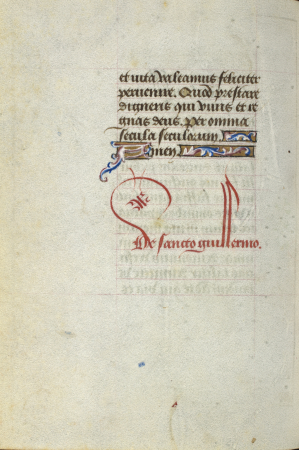 et vita valeamus feliciter
pervenire. Quod prestare
digneris qui vivis et re
gnas deus. Per omnia
secula seculorum.
Amen.
De sancto guillermo.